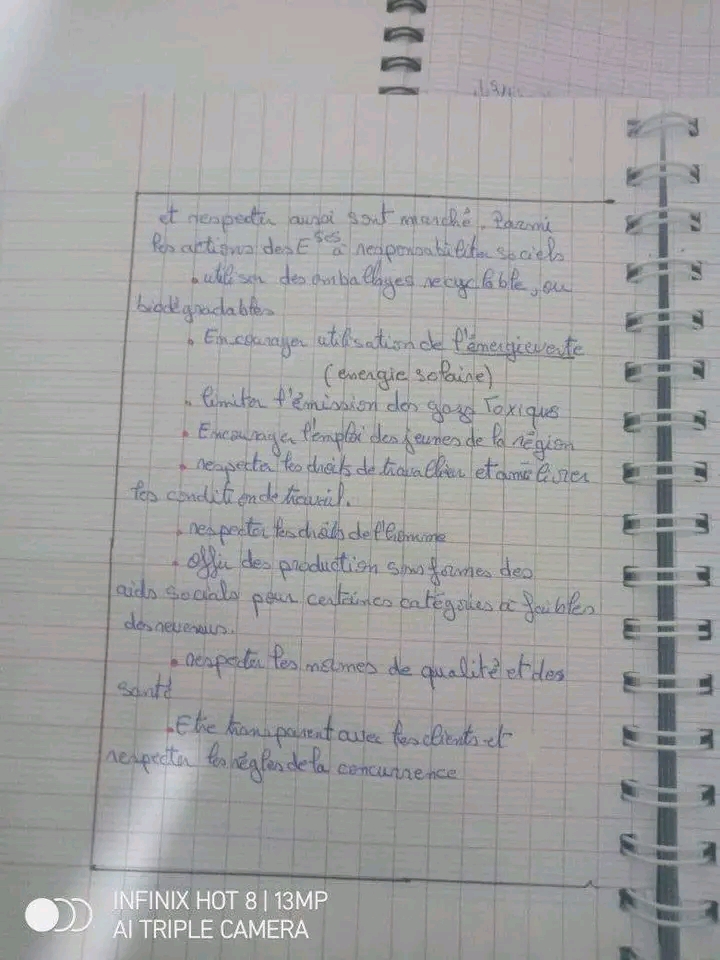 et respecter aussi sont marché. Parmi
les actions des E^ses à responsabiliter sociels
• utiliser des emballages recyclable, ou
biodégradables
• Encourager utilisation de l'énergie verte
(énergie solaire)
• limiter l'émission des gazs Toxiques
• Encourager l'emploi des jeunes de la région
• respecter les droits de travallier et améliorer
les condition de travail.
• respecter les droits de l'homme
• offrir des production sous formes des
aids socials pour certaines catégories à faibles
des revenus.
• respecter les normes de qualité et des
santé
• Etre transparent avec les clients et
respecter les règles de la concurrence
INFINIX HOT 8 | 13MP
AI TRIPLE CAMERA